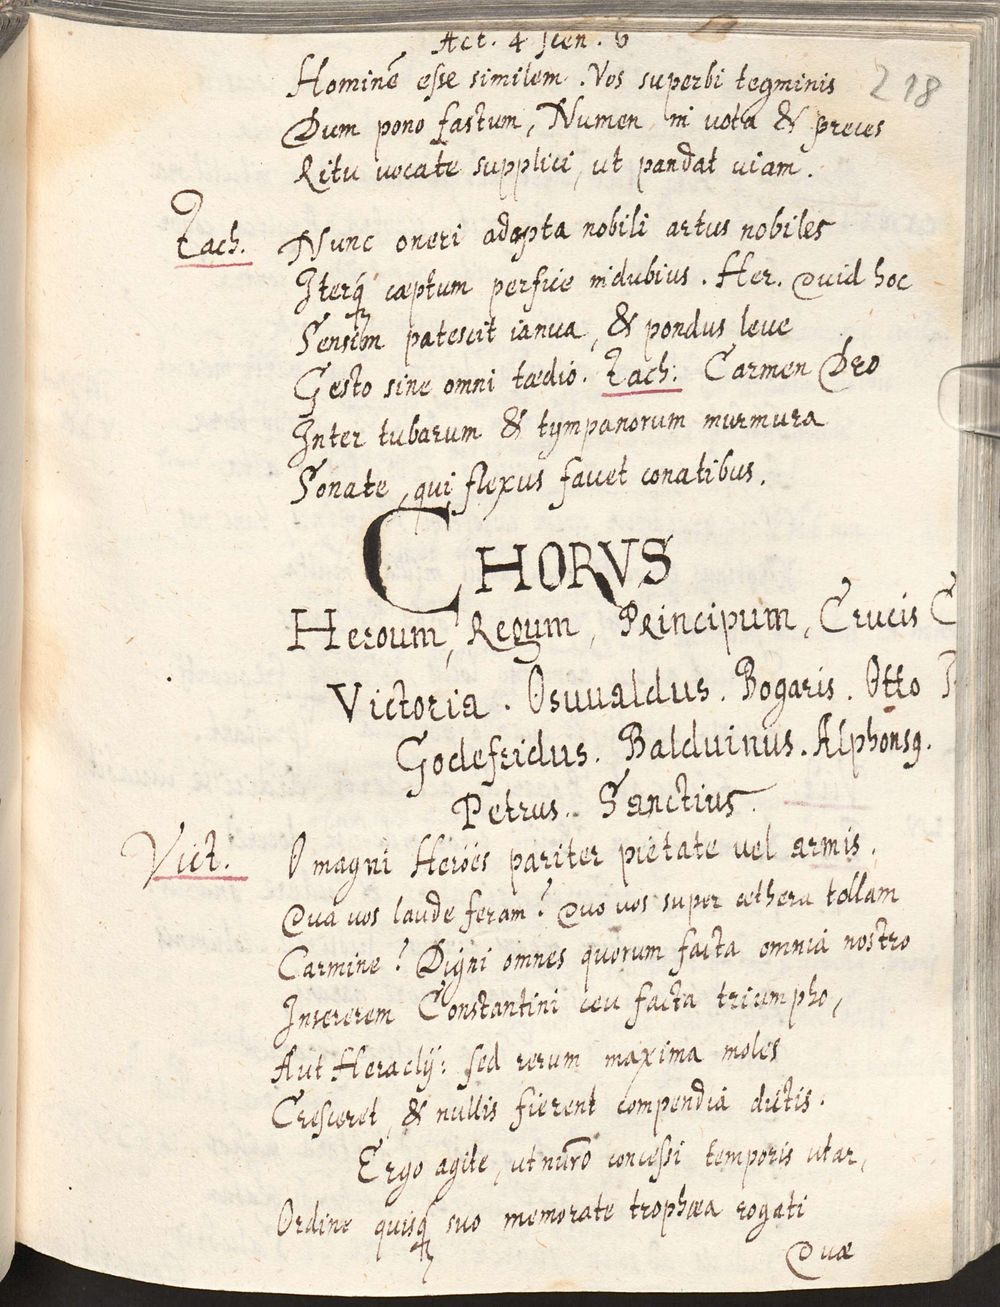 Act. 4 scen. 6
218
Hominē esse similem. Vos superbi tegminis
Dum pono fastum, Numen in vota & preces
Ritu vocate supplici, ut pandat viam.
Zach. Nunc oneri adapta nobili artus nobiles
Iterq́ cæptum perfice indubius. Her. Quid hoc
Sensim patescit ianua, & pondus leve
Gesto sine omni tædio. Zach: Carmen Deo
Inter tubarum & tympanorum murmura
Sonate, qui flexus favet conatibus.
CHORVS
Heroum, Regum, Principum, Crucis
Victoria. Osuualdus. Bogaris. Otto
Godefridus. Balduinus. Alphonsq.
Petrus. Sanctius.
Vict. O magni Heröes pariter pietate vel armis.
Qua vos laude feram? Quo vos super æthera tollam
Carmine? Digni omnes quorum facta omnia nostro
Insererem Constantini ceu facta triumpho,
Aut Heraclij: sed rerum maxima moles
Cresceret, & nullis fierent compendia dictis.
Ergo agite, ut nūro concessi temporis utar,
Ordine quisq́ suo memorate trophæa rogati
Quæ